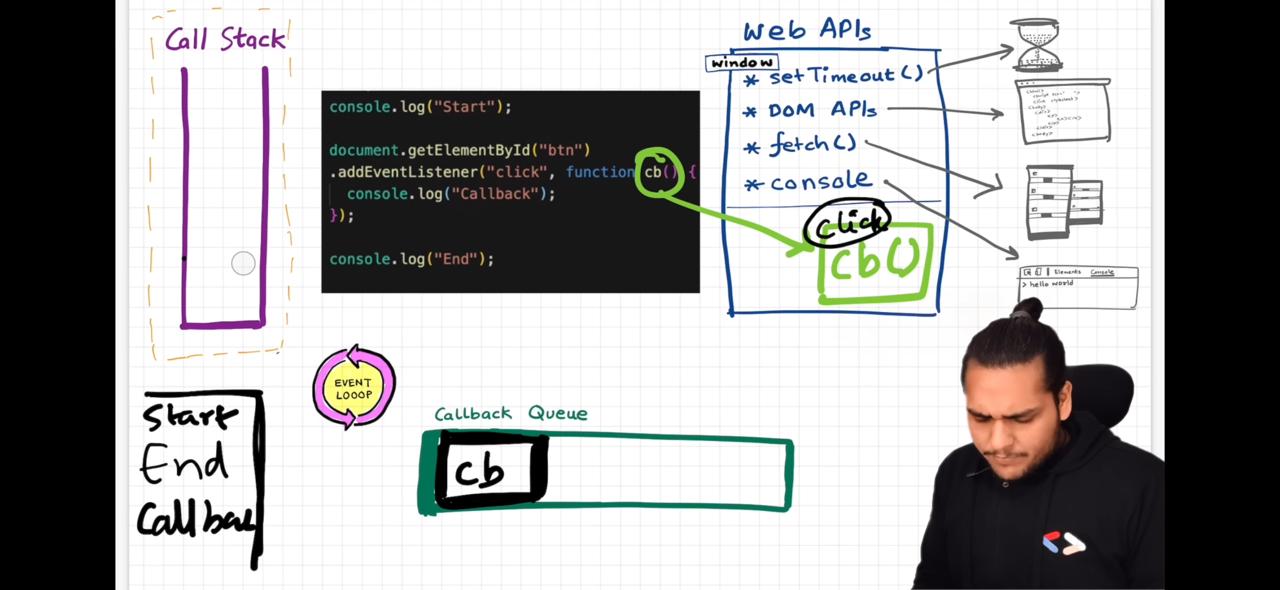 Call Stack
console.log("Start");
document.getElementById("btn")
.addEventListener("click", function cb() {
console.log("Callback");
});
console.log("End");
Web APIs
window
* setTimeout()
* DOM APIs
* fetch()
* console
click
cb()
Elements Console
> hello world
EVENT
LOOOP
Start
End
Callbac
Callback Queue
cb